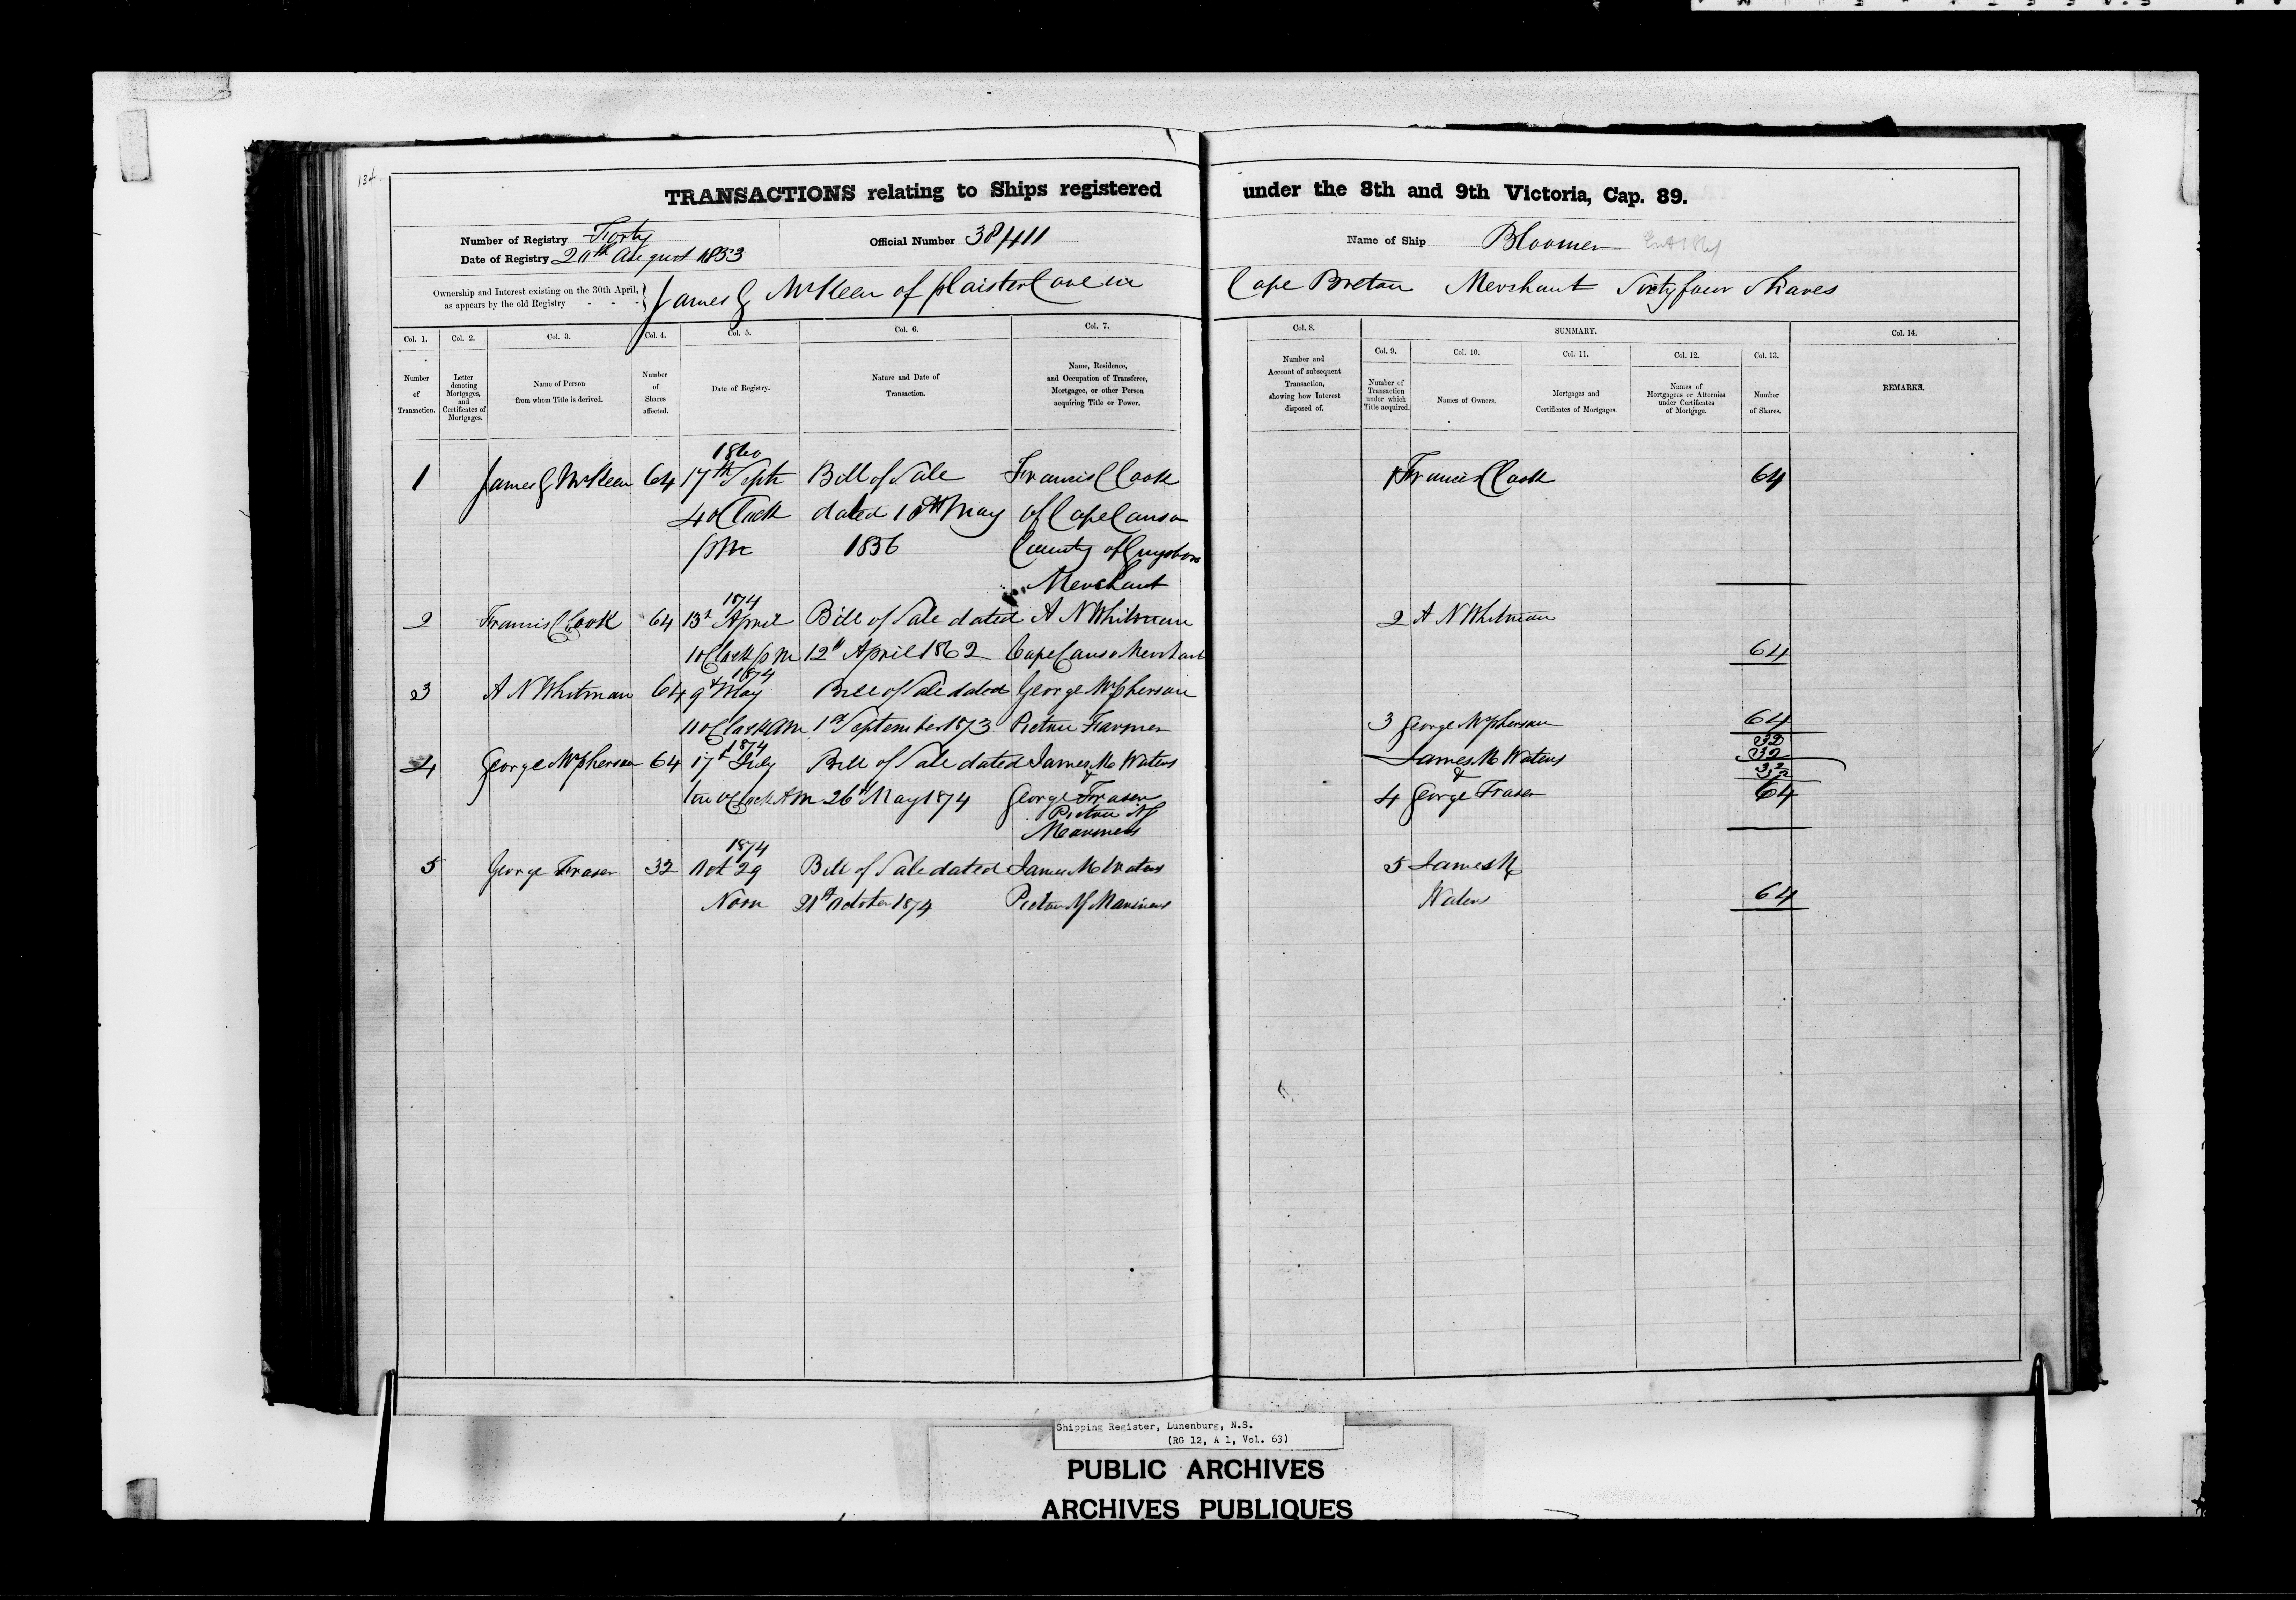 134
TRANSACTIONS relating to Ships registered under the 8th and 9th Victoria, Cap. 89.
Number of Registry Forty
Date of Registry 20th August 1853
Official Number 38411
Name of Ship Bloomer
Ownership and Interest existing on the 30th April, as appears by the old Registry - - - } James G McKeen of plaister Cove in Cape Breton Merchant Sixty four Shares
Col. 1. Col. 2. Col. 3. Col. 4. Col. 5. Col. 6. Col. 7. Col. 8. SUMMARY. Col. 14.
Col. 9. Col. 10. Col. 11. Col. 12. Col. 13.
Number of Transaction.
Letter denoting Mortgages, and Certificates of Mortgages.
Name of Person from whom Title is derived.
Number of Shares affected.
Date of Registry.
Nature and Date of Transaction.
Name, Residence, and Occupation of Transferee, Mortgagee, or other Person acquiring Title or Power.
Number and Account of subsequent Transaction, showing how Interest disposed of.
Number of Transaction under which Title acquired.
Names of Owners.
Mortgages and Certificates of Mortgages.
Names of Mortgagees or Attornies under Certificates of Mortgage.
Number of Shares.
REMARKS.
1860
1 James G McKeen 64 17th Septr Bill of Sale Francis Cook 1 Francis Cook 64
4 oClock dated 10th May of Cape Canso
pm 1856 County of Guysboro
Merchant
1874
2 Francis Cook 64 13th April Bill of Sale dated A N Whitman 2 A N Whitman
1 oClock pm 12th April 1862 Cape Canso Merchant 64
1874
3 A N Whitman 64 9th May Bill of Sale dated George McPherson
11 oClock am 1st September 1873 Pictou Farmer 3 George McPherson 64
1874 32
4 George McPherson 64 17th July Bill of Sale dated James M Waters James M Waters 32
& & 32
ten oClock AM 26th May 1874 George Fraser 4 George Fraser 64
Pictou NS
Mariners
1874
5 George Fraser 32 Oct 29 Bill of Sale dated James M Waters 5 James M
Noon 21st October 1874 Pictou NS Mariners Waters 64
Shipping Register, Lunenburg, N.S.
(RG 12, A 1, Vol. 63)
PUBLIC ARCHIVES
ARCHIVES PUBLIQUES